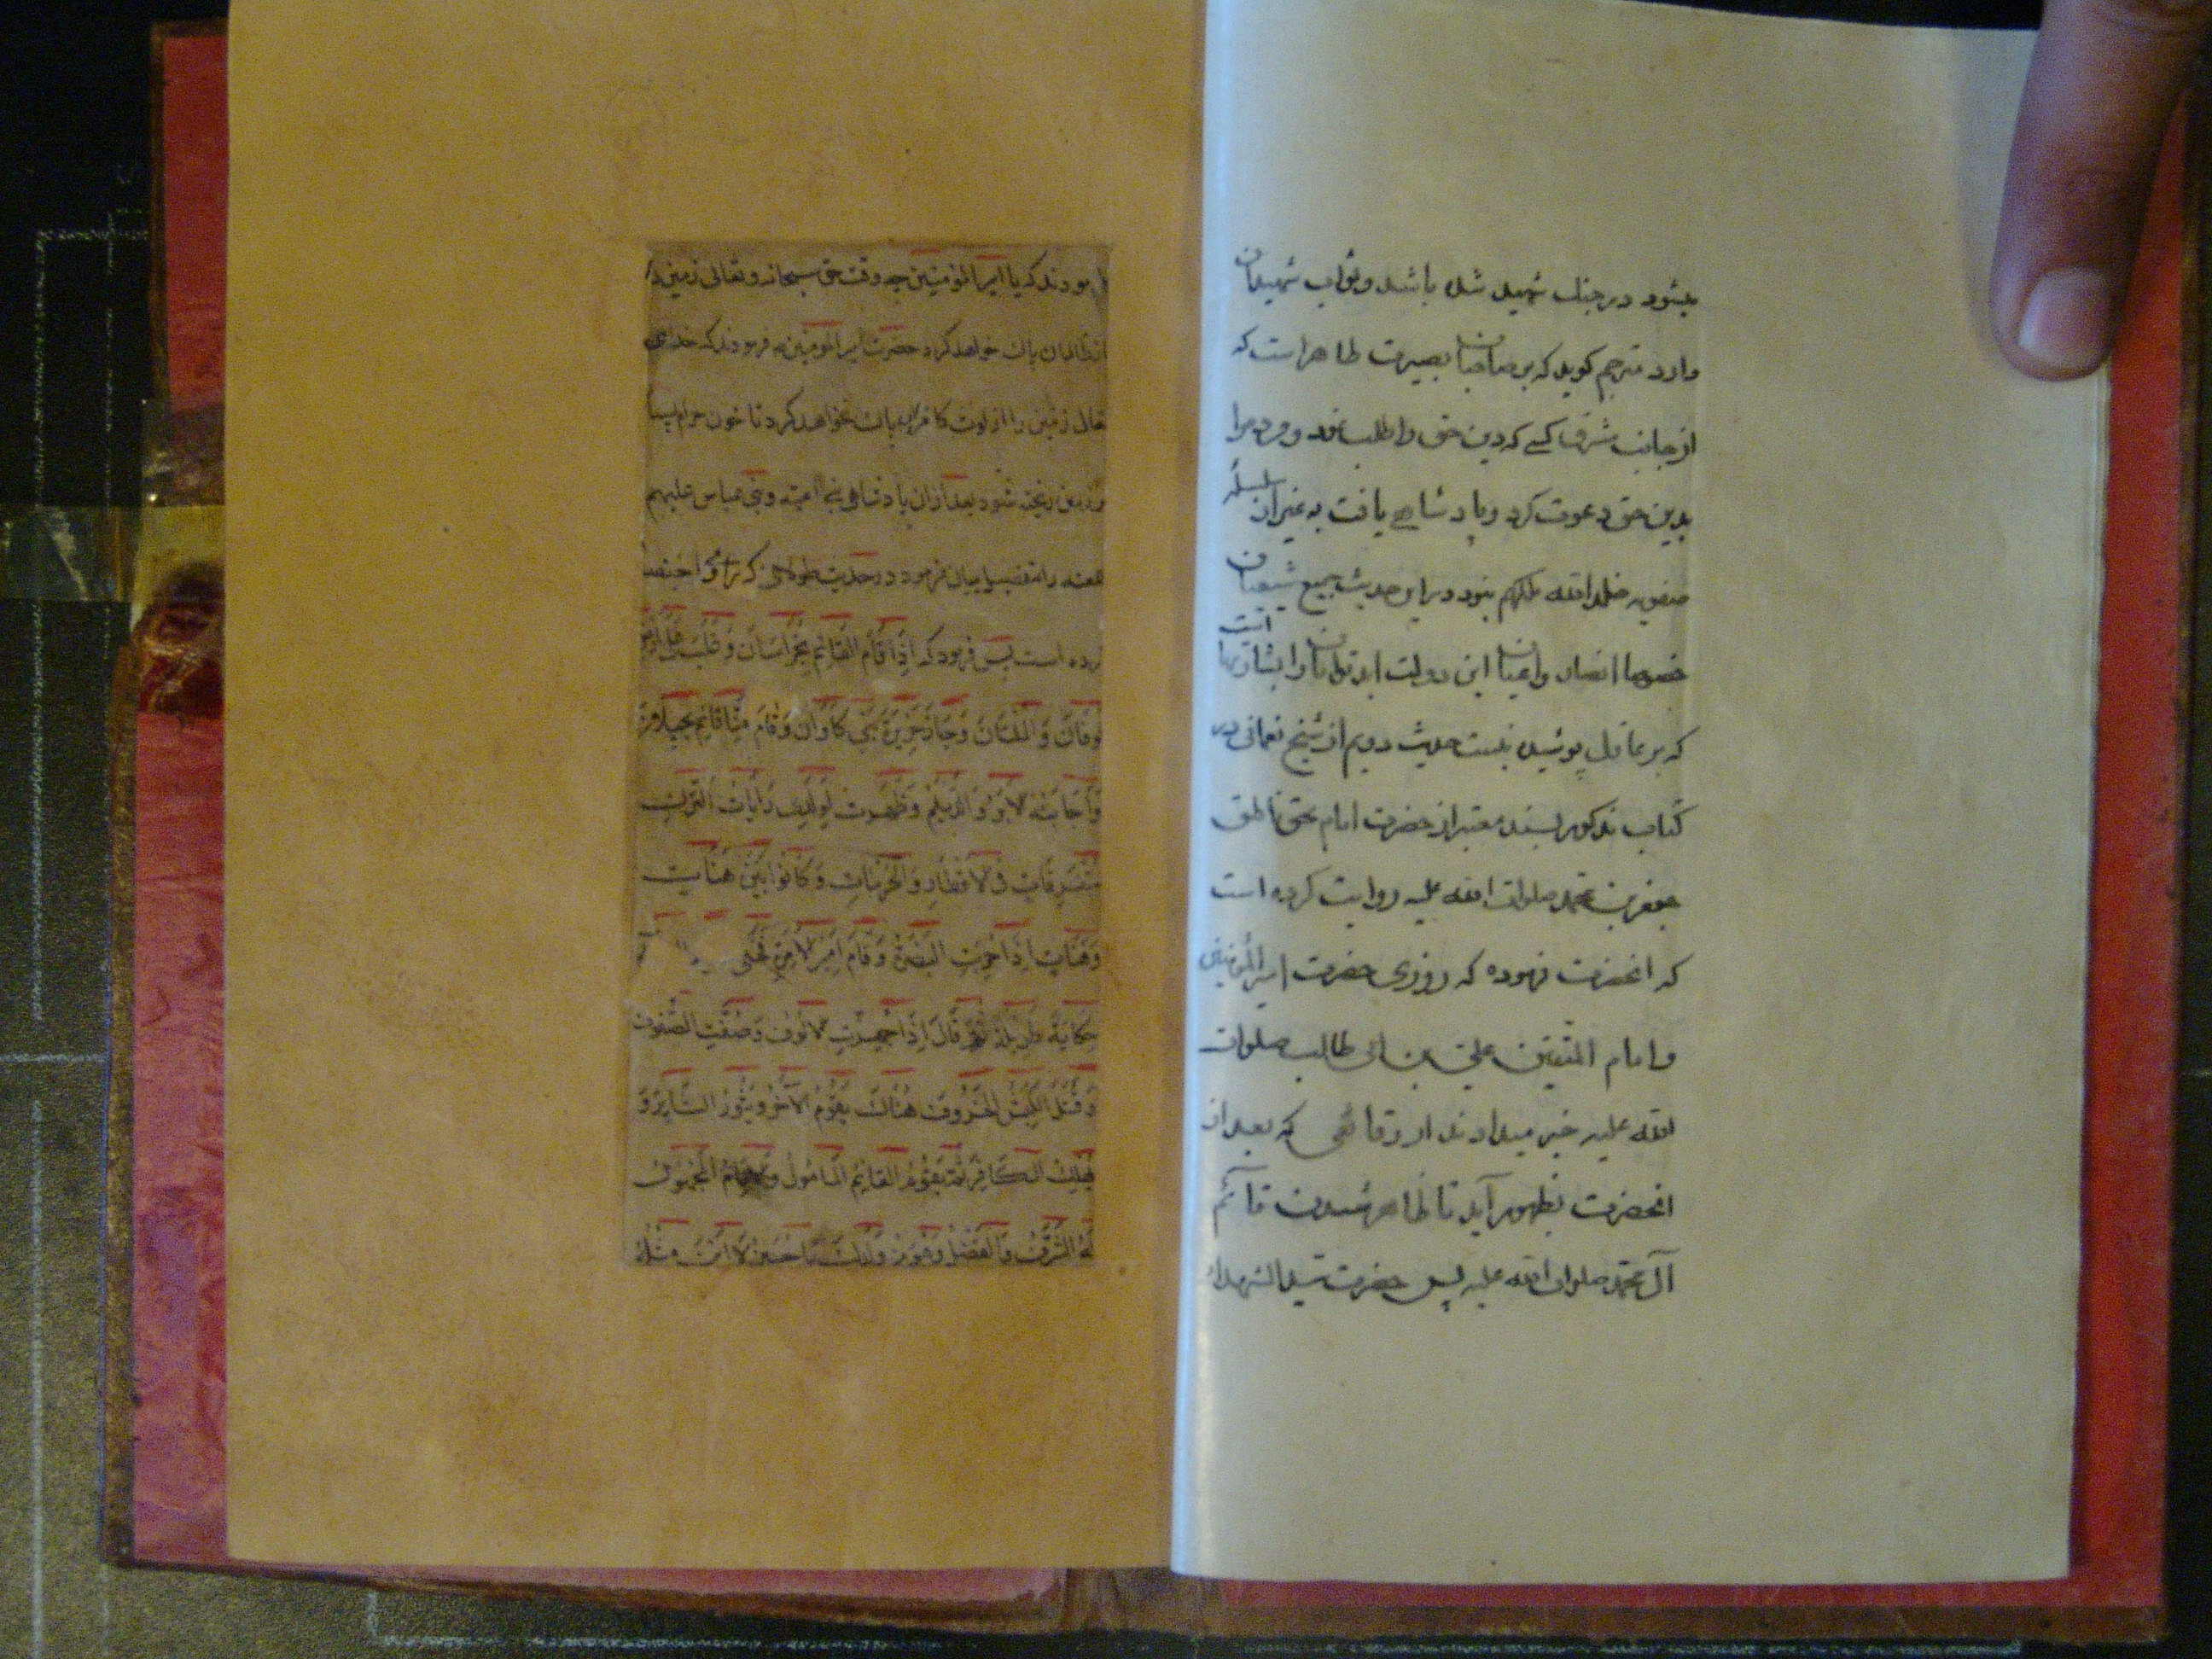 میشود در جنك شهید شده باشد و ثواب شهیدان
دارد مترجم كوید كه بر صاحبان بصیرت ظاهر است كه
از جانب مشرق كسے كه دین حق را طلب نمود و مردم را
بدین حق دعوت كرد و پادشاهے یافت به غیر از سلسله
صفویه خلد الله ملكهم نبود در این حدیث جمیع شیعیان
خصوصا انصار و اعیان این دولت ابد توامان را بشارتهاست
كه بر عاقل پوشیده نیست حدیث دویم از شیخ نعمانی در
كتاب مذكور بسند معتبر از حضرت امام بحق ناطق
جعفر بن محمد صلوات الله علیه روایت كرده است
كه انحضرت فرموده كه روزی حضرت امیر المؤمنین
و امام المتقین علی بن ابی طالب صلوات
الله علیه خبر میدادند از وقائعی كه بعد از
انحضرت بظهور آید تا ظاهر شدن قائم
آل محمد صلوات الله علیه پس حضرت سید الشهداء
فرمودند كه یا امیر المؤمنین چه وقت حق سبحانه و تعالی زمین را
از ظالمان پاك خواهد كرد حضرت امیر المؤمنین فرمودند كه خدای
تعالی زمین را از لوث كافران پاك نخواهد كرد تا خون حرام بسیار
بر زمین ریخته شود بعد از ان پادشاهی بنی امیه و بنی عباس علیهم
اللعنه را بتفصیل بیان فرمود در حدیث طولانی كه راوی اختصار
كرده است پس فرمود كه اِذَا قَامَ القَائِمُ بِخُرَاسَانَ وَ غَلَبَ عَلَى اَرْضِ
كوفَانَ وَ الْمُلْتَانَ وَ جَازَ جَزِیرَةَ بَنِي كَاوَانَ وَ قَامَ مِنَّا قَائِم بِجِیلَانَ
وَ اَجَابَتْهُ الآبُرُ وَ الدَّیْلَمُ وَ ظَهَرَتْ لِوَلَدِي رَایَاتُ التُّرْكِ
مُتَفَرِّقَاتٍ فِي الاَقْطَارِ وَ الحُرُمَاتِ وَ كَانُوا بَیْنَ هَنَاتٍ
وَ هَنَاتٍ اِذَا خَرِبَتِ البَصْرَةُ وَ قَامَ اَمِیرُ الاِمْرَةِ فَحَكَی
حِكَایَةً طَوِیلَةً ثُمَّ قَالَ اِذَا جُهِّزَتِ الاُلُوفُ وَ صُفَّتِ الصُّفُوفُ
وَ قَتَلَ الكَبْشُ الخَرُوفَ هُنَاكَ یَقُومُ الآخَرُ وَ یَثُورُ الثَّائِرُ وَ
یَهْلِكُ الكَافِرُ ثُمَّ یَقُومُ القَائِمُ المَامُولُ وَ الاِمَامُ المَجْهُولُ
لَهُ الشَّرَفُ وَ الفَضْلُ وَ هُوَ مِنْ وَلَدِكَ یَا حُسَیْنُ لَا ابْنَ مِثْلُهُ